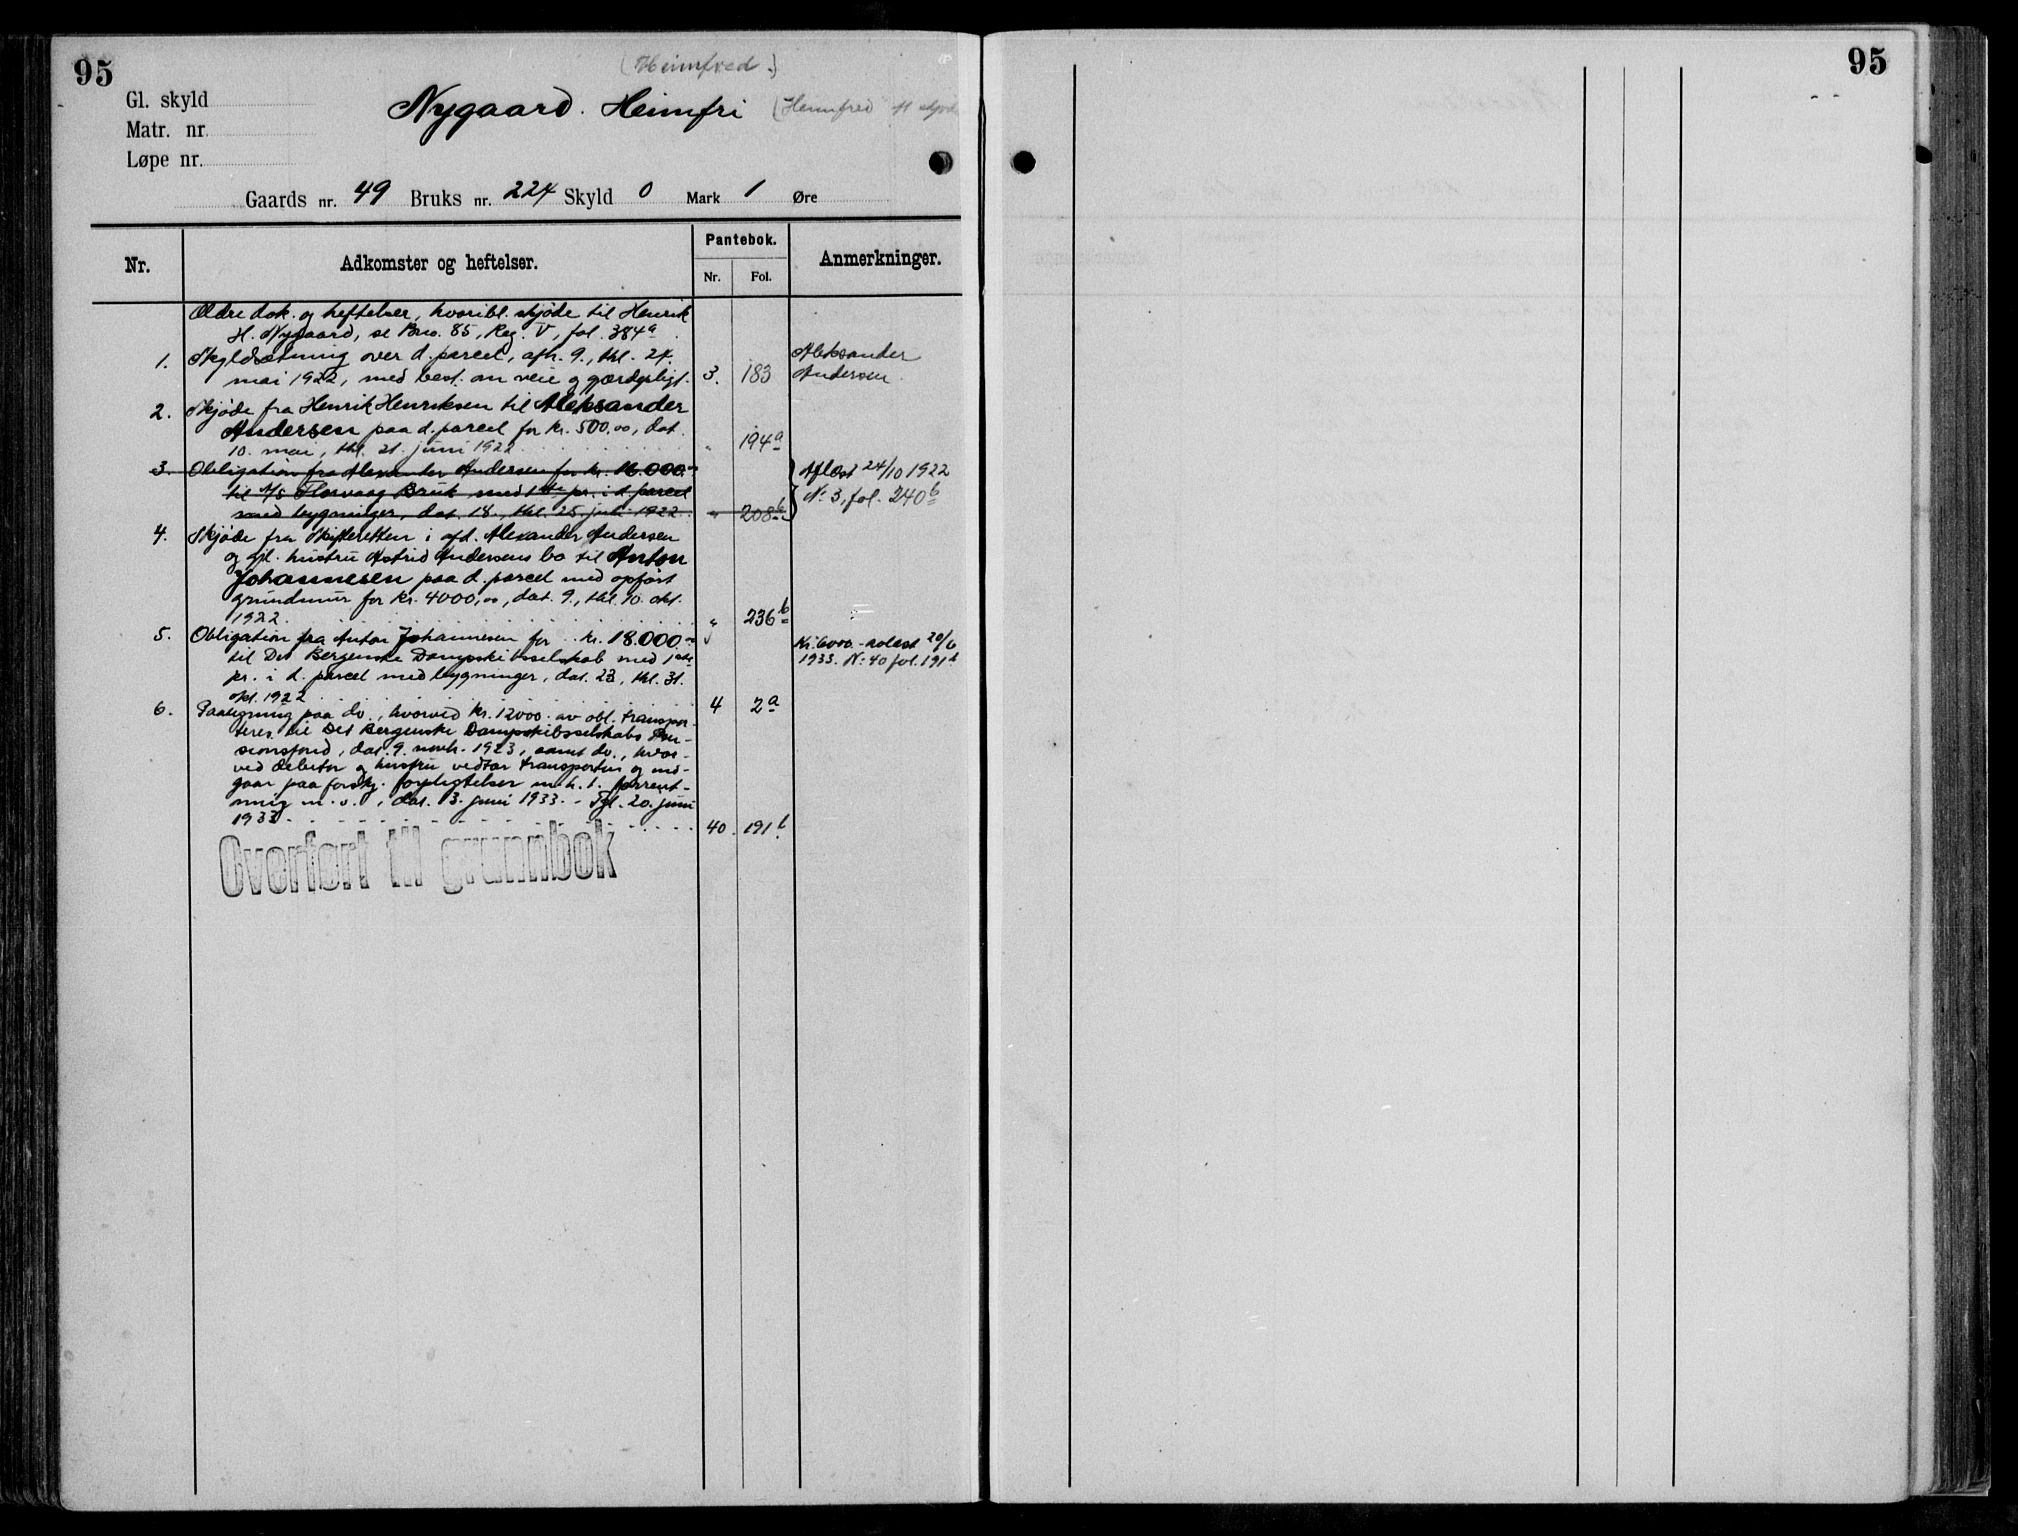 95
(Heimfred.)
Gl. skyld
Nygaard. Heimfri (Heimfred
Matr. nr.
Løpe nr.
Gaards nr. 49 Bruks nr. 224 Skyld 0 Mark 1 Øre
Nr. Adkomster og heftelser. Pantebok. Nr. Fol. Anmerkninger.
Ældre dok. og heftelser, hvoribl. skjøde til Henrik
H. Nygaard, se Bno. 85, Reg. V, fol. 384a.
1. Skyldsætning over d. parcel, afh. 9., thl. 24.
mai 1922, med best. om veie og gjærdepligt. 3. 183 Aleksander Andersen.
2. Skjøde fra Henrik Henriksen til Aleksander
Andersen paa d. parcel for kr. 500,00, dat.
10. mai, thl. 21. juni 1922 " 194a
3. Obligation fra Alexander Andersen for kr. 16.000.-
til A/S Florvaag Bruk med 1ste pr. i d. parcel
med bygninger, dat. 18., thl. 25. juli 1922. " 208b
Aflæst 24/10 1922
No 3, fol. 240b
4. Skjøde fra Skifteretten i afd. Alexander Andersen
og gjl. hustru Astrid Andersens bo til Anton
Johannesen paa d. parcel med opført
grundmur for kr. 4000,00, dat. 9., thl. 10. okt.
1922. " 236b
5. Obligation fra Anton Johannesen for kr. 18.000.-
til Det Bergenske Dampskibsselskab med 1ste
pr. i d. parcel med bygninger, dat. 23, thl. 31.
okt. 1922 4 2a
Kr. 6000.- avlæst 20/6
1933. No 40 fol. 191b
6. Paategning paa do., hvorved kr. 12000.- av obl. transpor-
teres til Det Bergenske Dampskibsselskabs Pen-
sionsfond, dat. 9. novbr. 1923, samt do., hvor-
ved debitor og hustru vedtar transporten og ind-
gaar paa forskj. forpligtelser m.h.t. forrent-
ning m.v., dat. 3. juni 1933. - Tgl. 20. juni
1933. 40. 191b
Overført til grunnbok
95